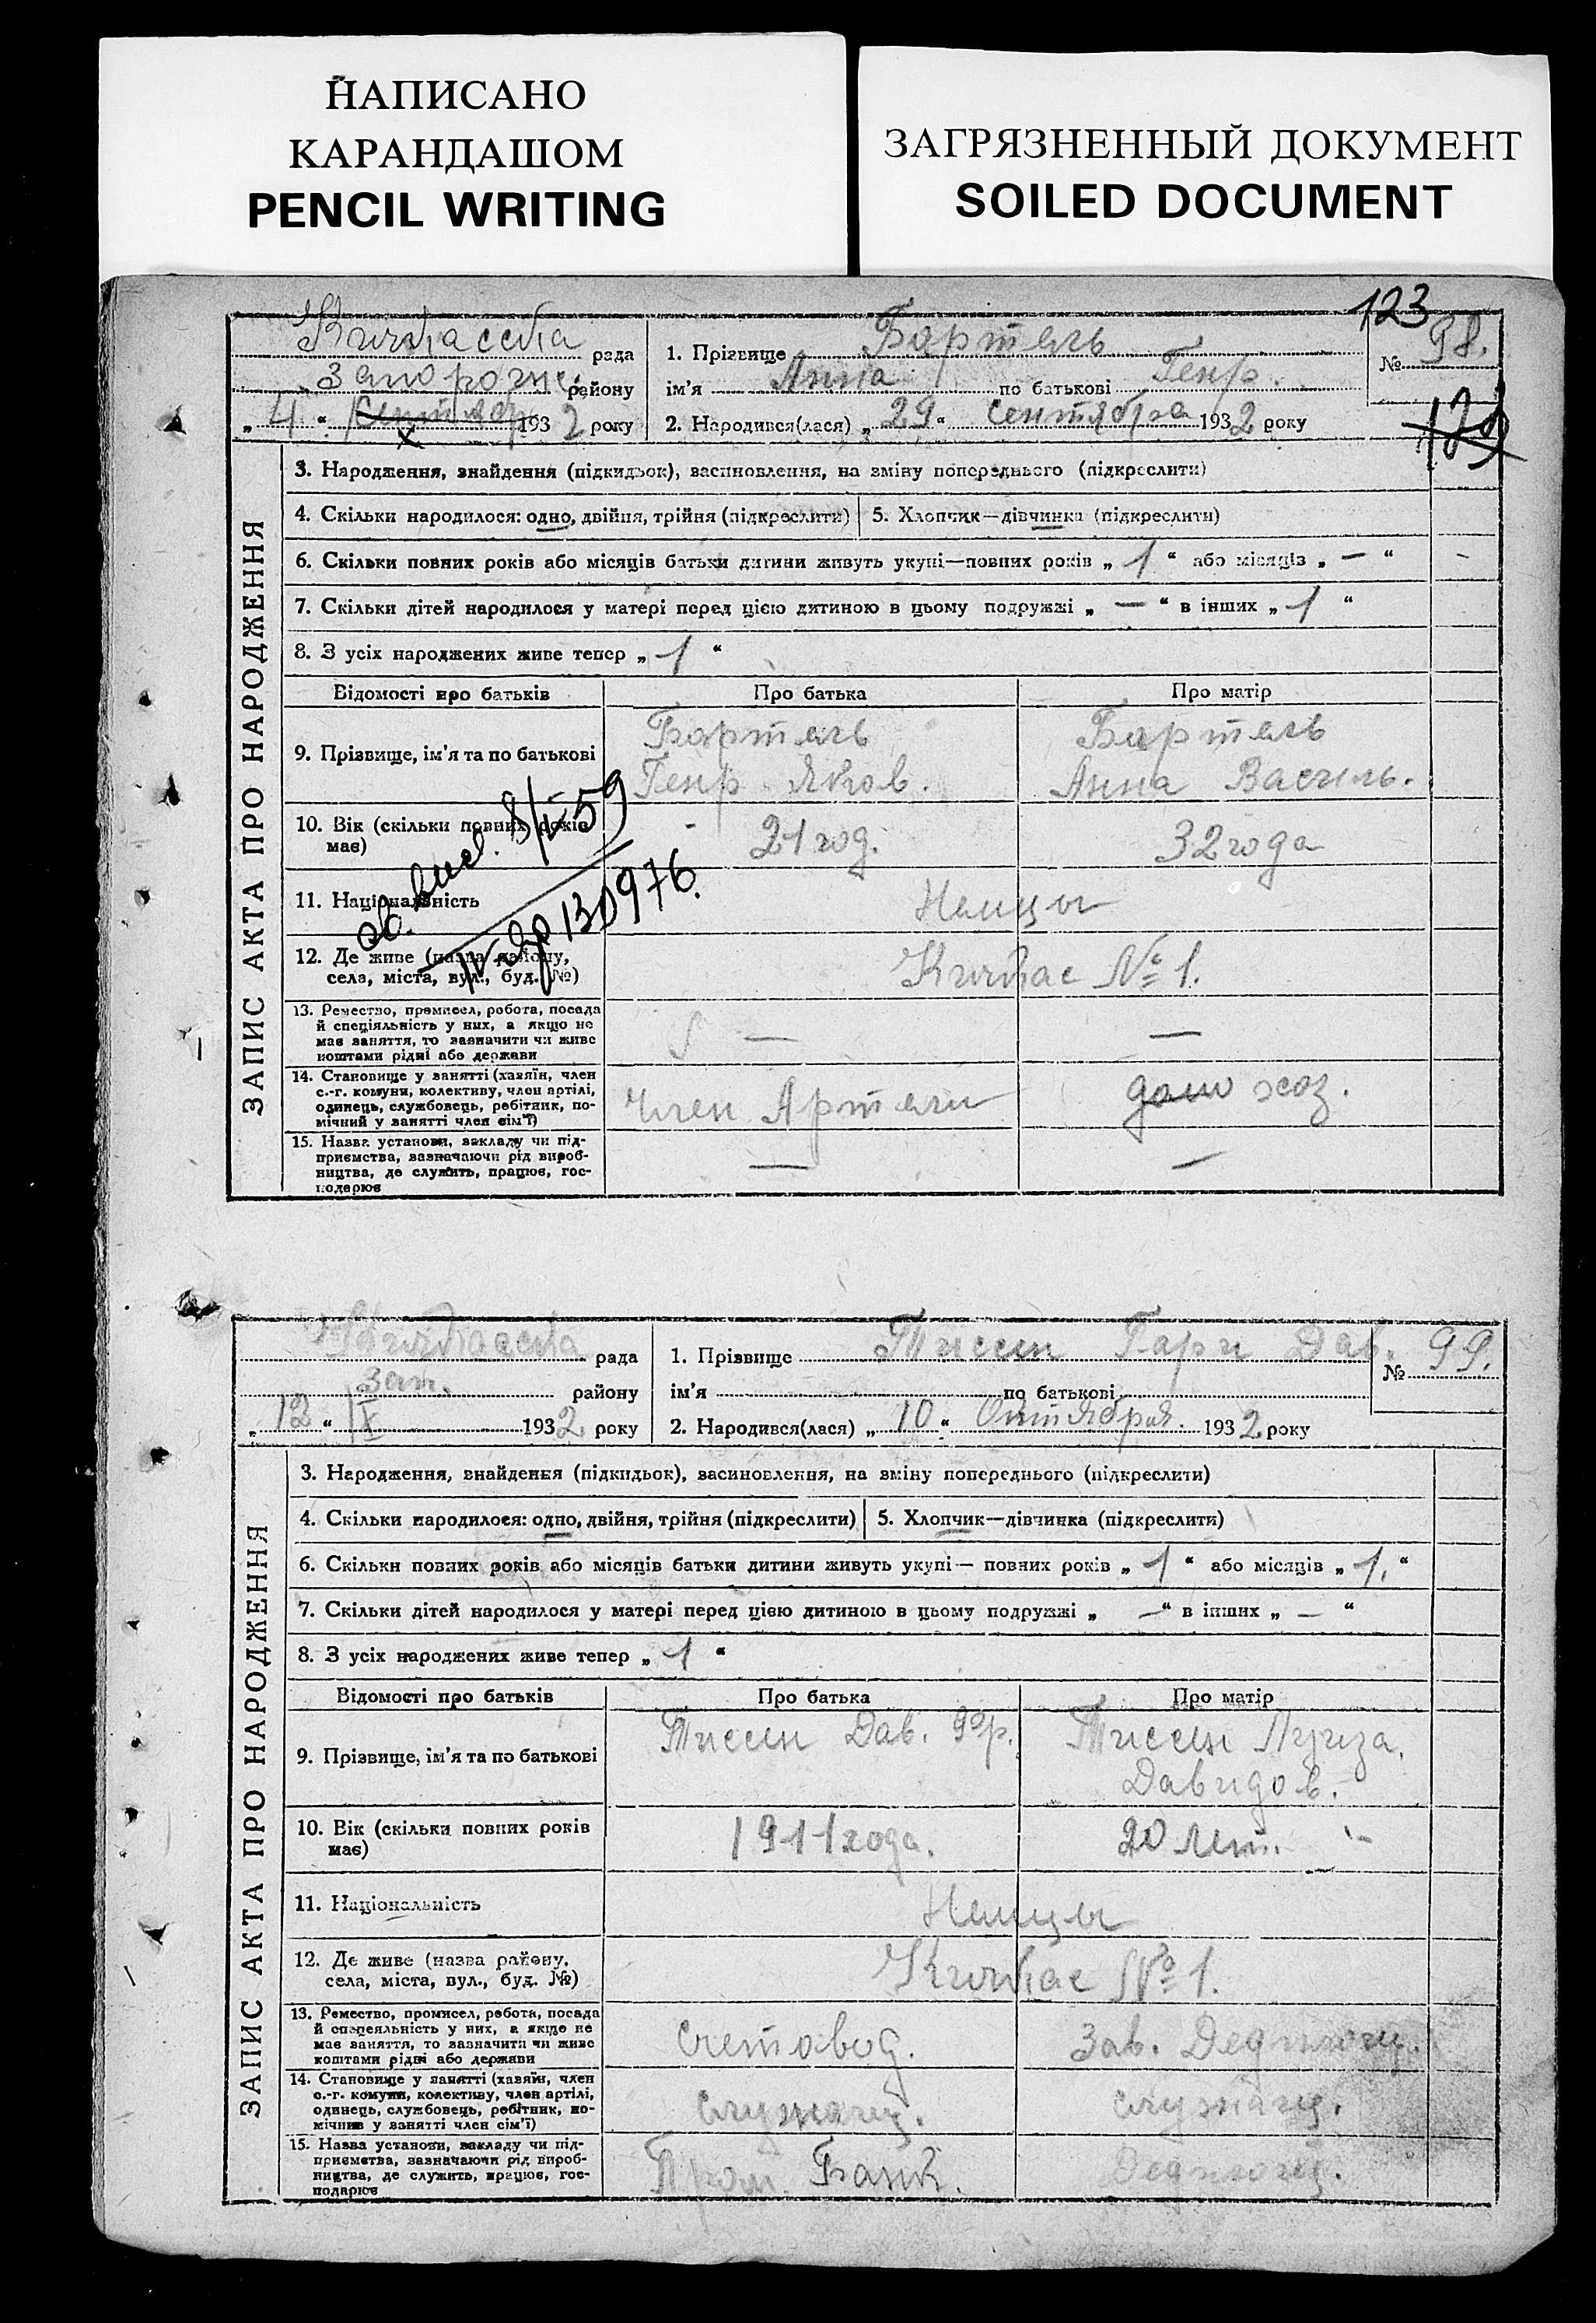 НАПИСАНО
КАРАНДАШОМ
PENCIL WRITING
ЗАГРЯЗНЕННЫЙ ДОКУМЕНТ
SOILED DOCUMENT
123
Кичкасска рада
Запорожс. району
„ 4 “ сентябр X 1932 року
1. Прізвище Бартель
ім'я Анна по батькові Генр.
2. Народився(лася) „ 29 “ сентября 1932 року
№ 98.
ЗАПИС АКТА ПРО НАРОДЖЕННЯ
3. Народження, знайдення (підкидьок), васиновлення, на зміну попереднього (підкреслити)
4. Скільки народилося: одно, двійня, трійня (підкреслити)
5. Хлопчик—дівчинка (підкреслити)
6. Скільки повних років або місяців батьки дитини живуть укупі—повних років „ 1 “ або місяців „ — “ -
7. Скільки дітей народилося у матері перед цією дитиною в цьому подружжі „ — “ в інших „ 1 “
8. З усіх народжених живе тепер „ 1 “
Відомості про батьків Про батька Про матір
9. Прізвище, ім'я та по батькові
Бартель
Генр. Яков.
Бартель
Анна Василь.
10. Вік (скільки повних років
має)
21 год.
32 года
11. Національність
Немцы
12. Де живе (назва району,
села, міста, вул., буд. №)
Кичкас № 1.
13. Ремество, промисел, робота, посада
й спеціяльність у них, а якщо не
має заняття, то зазначити чи живе
коштами рідні або держави
—
—
14. Становище у занятті (хазяїн, член
с.-г. комуни, колективу, член артілі,
одинець, службовець, робітник, по-
мічний у занятті член сім'ї)
член Артели
дом хоз.
15. Назва установи, закладу чи під-
приємства, зазначаючи рід вироб-
ництва, де служить, працює, гос-
подарює
—
—
59
130976.
Кичкасска рада
Зап. району
„ 12 “ IX 1932 року
1. Прізвище Тиссен Гари Дав.
ім'я по батькові
2. Народився(лася) „ 10 “ Октября. 1932 року
№ 99.
ЗАПИС АКТА ПРО НАРОДЖЕННЯ
3. Народження, знайдення (підкидьок), васиновлення, на зміну попереднього (підкреслити)
4. Скільки народилося: одно, двійня, трійня (підкреслити)
5. Хлопчик—дівчинка (підкреслити)
6. Скільки повних років або місяців батьки дитини живуть укупі — повних років „ 1 “ або місяців „ 1. “
7. Скільки дітей народилося у матері перед цією дитиною в цьому подружжі „ — “ в інших „ — “
8. З усіх народжених живе тепер „ 1 “
Відомості про батьків Про батька Про матір
9. Прізвище, ім'я та по батькові
Тиссен Дав. Фр.
Тиссен Луиза.
Давидов.
10. Вік (скільки повних років
має)
1911 года.
20 лет.
11. Національність
Немцы
12. Де живе (назва району,
села, міста, вул., буд. №)
Кичкас № 1.
13. Ремество, промисел, робота, посада
й спецеяльність у них, а якщо не
має заняття, то зазначити чи живе
коштами рідні або держави
счетовод.
Зав.
14. Становище у занятті (хазяїн, член
с.-г. комуни, колективу, член артілі,
одинець, службовець, робітник, по-
мічник у занятті член сім'ї)
служащ.
служащ.
15. Назва установи, закладу чи під-
приємства, зазначаючи рід вироб-
ництва, де служить, працює, гос-
подарює
Пром. Банк.